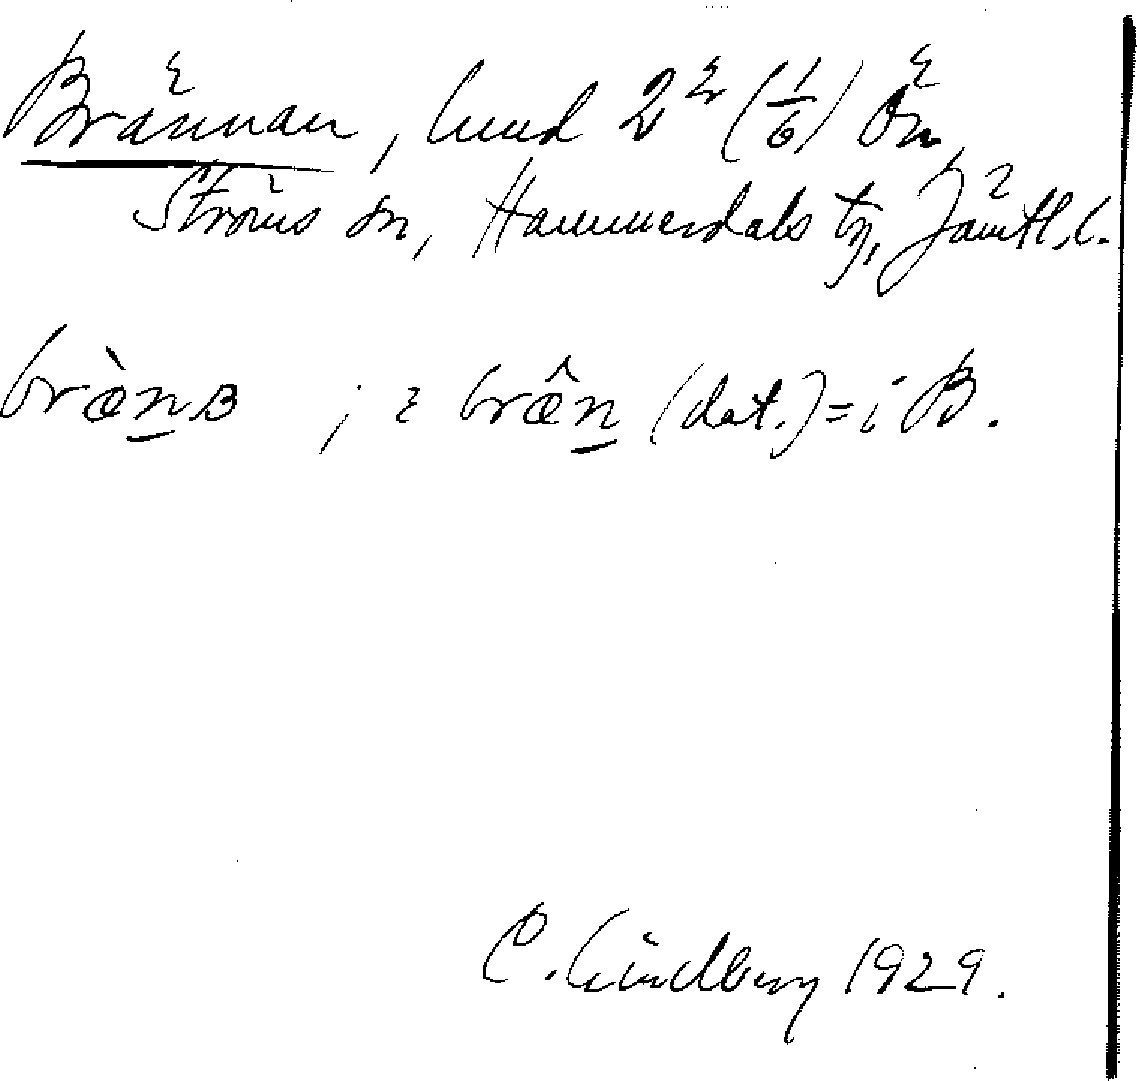 Brännan, hmd 2⁴ (1/6) Ön
Ströms sn, Hammerdals tg, Jämtl. l.
bràn̲ʙ ; ɪ brân̲ (dat.) = i B.
C. Lindberg 1929.